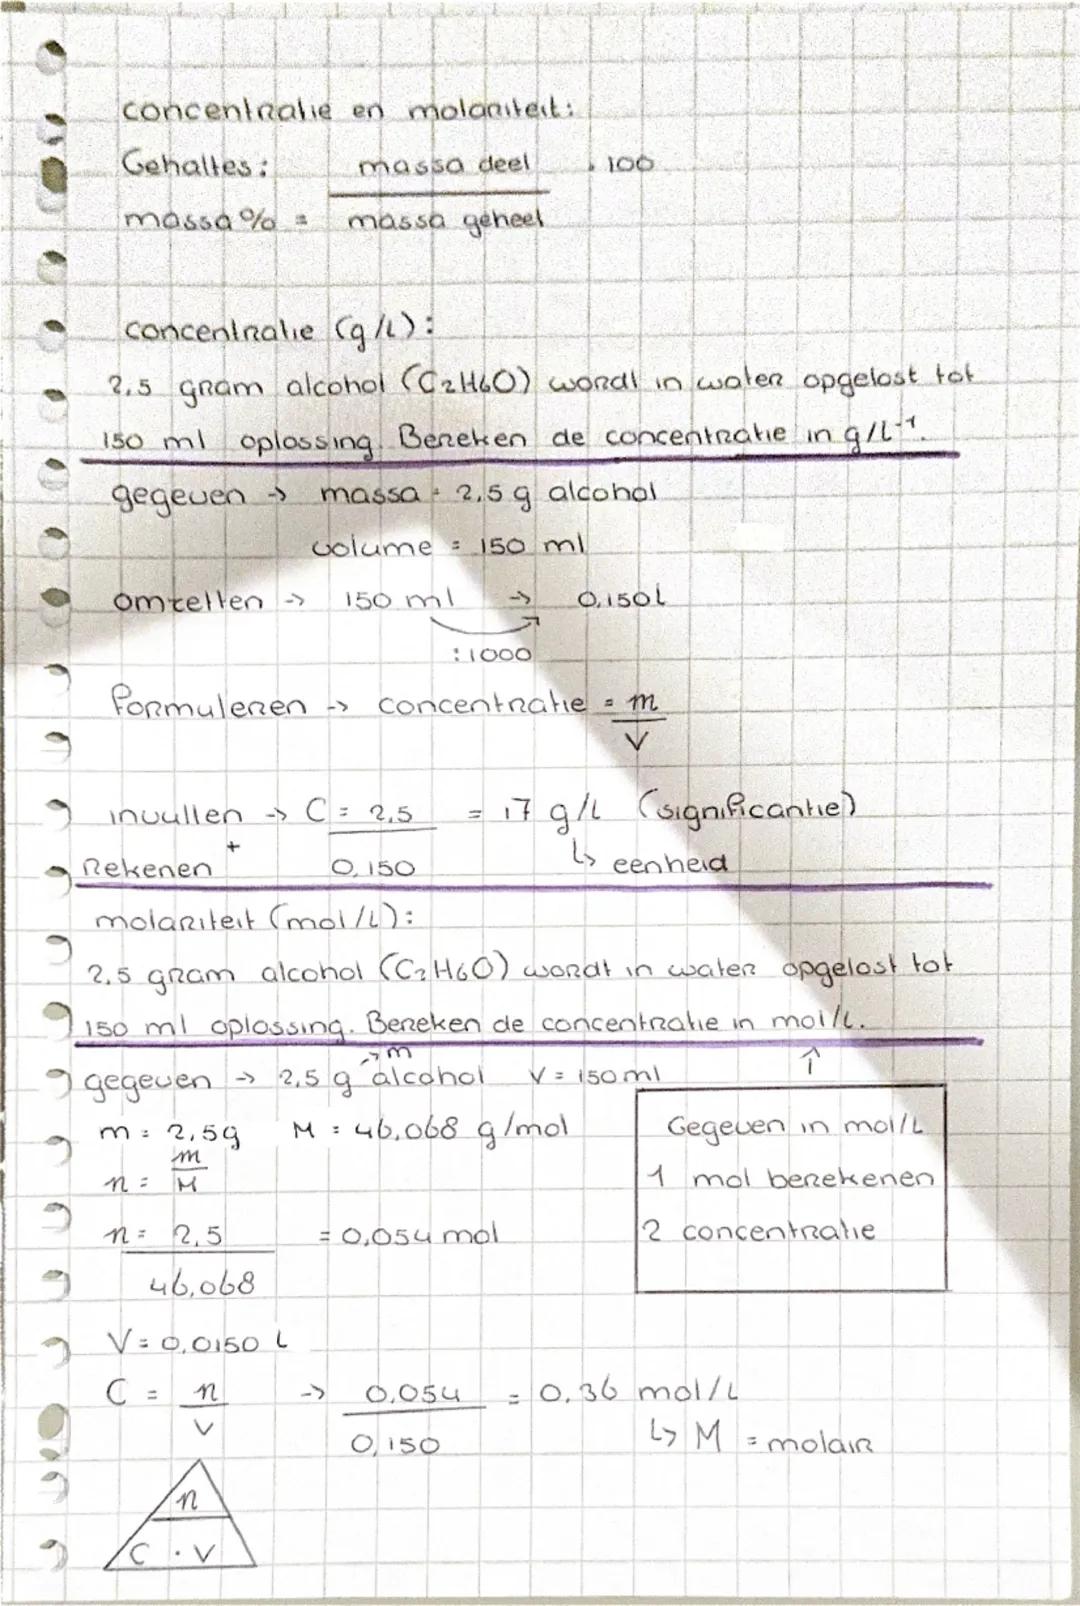 concentratie en molariteit:
Gehaltes: massa deel . 100
massa % = massa geheel
concentratie (g/L):
2,5 gram alcohol (C2H6O) wordt in water opgelost tot
150 ml oplossing. Bereken de concentratie in g/L-1.
gegeven -> massa = 2,5 g alcohol
volume = 150 ml
omzetten -> 150 ml -> 0,150L
:1000
formuleren -> concentratie = m
V
invullen -> C = 2,5 = 17 g/L (significantie)
+
Rekenen 0,150 ↳ eenheid
molariteit (mol/L):
2,5 gram alcohol (C2H6O) wordt in water opgelost tot
150 ml oplossing. Bereken de concentratie in mol/L.
->m ↑
gegeven -> 2,5 g alcohol V = 150 ml
m = 2,5g M = 46,068 g/mol
n = m
M
n = 2,5 = 0,054 mol
46,068
Gegeven in mol/L
1 mol berekenen
2 concentratie
V = 0,0150 L
C = n -> 0,054 = 0,36 mol/L
V 0,150 ↳ M = molair
n
C . V